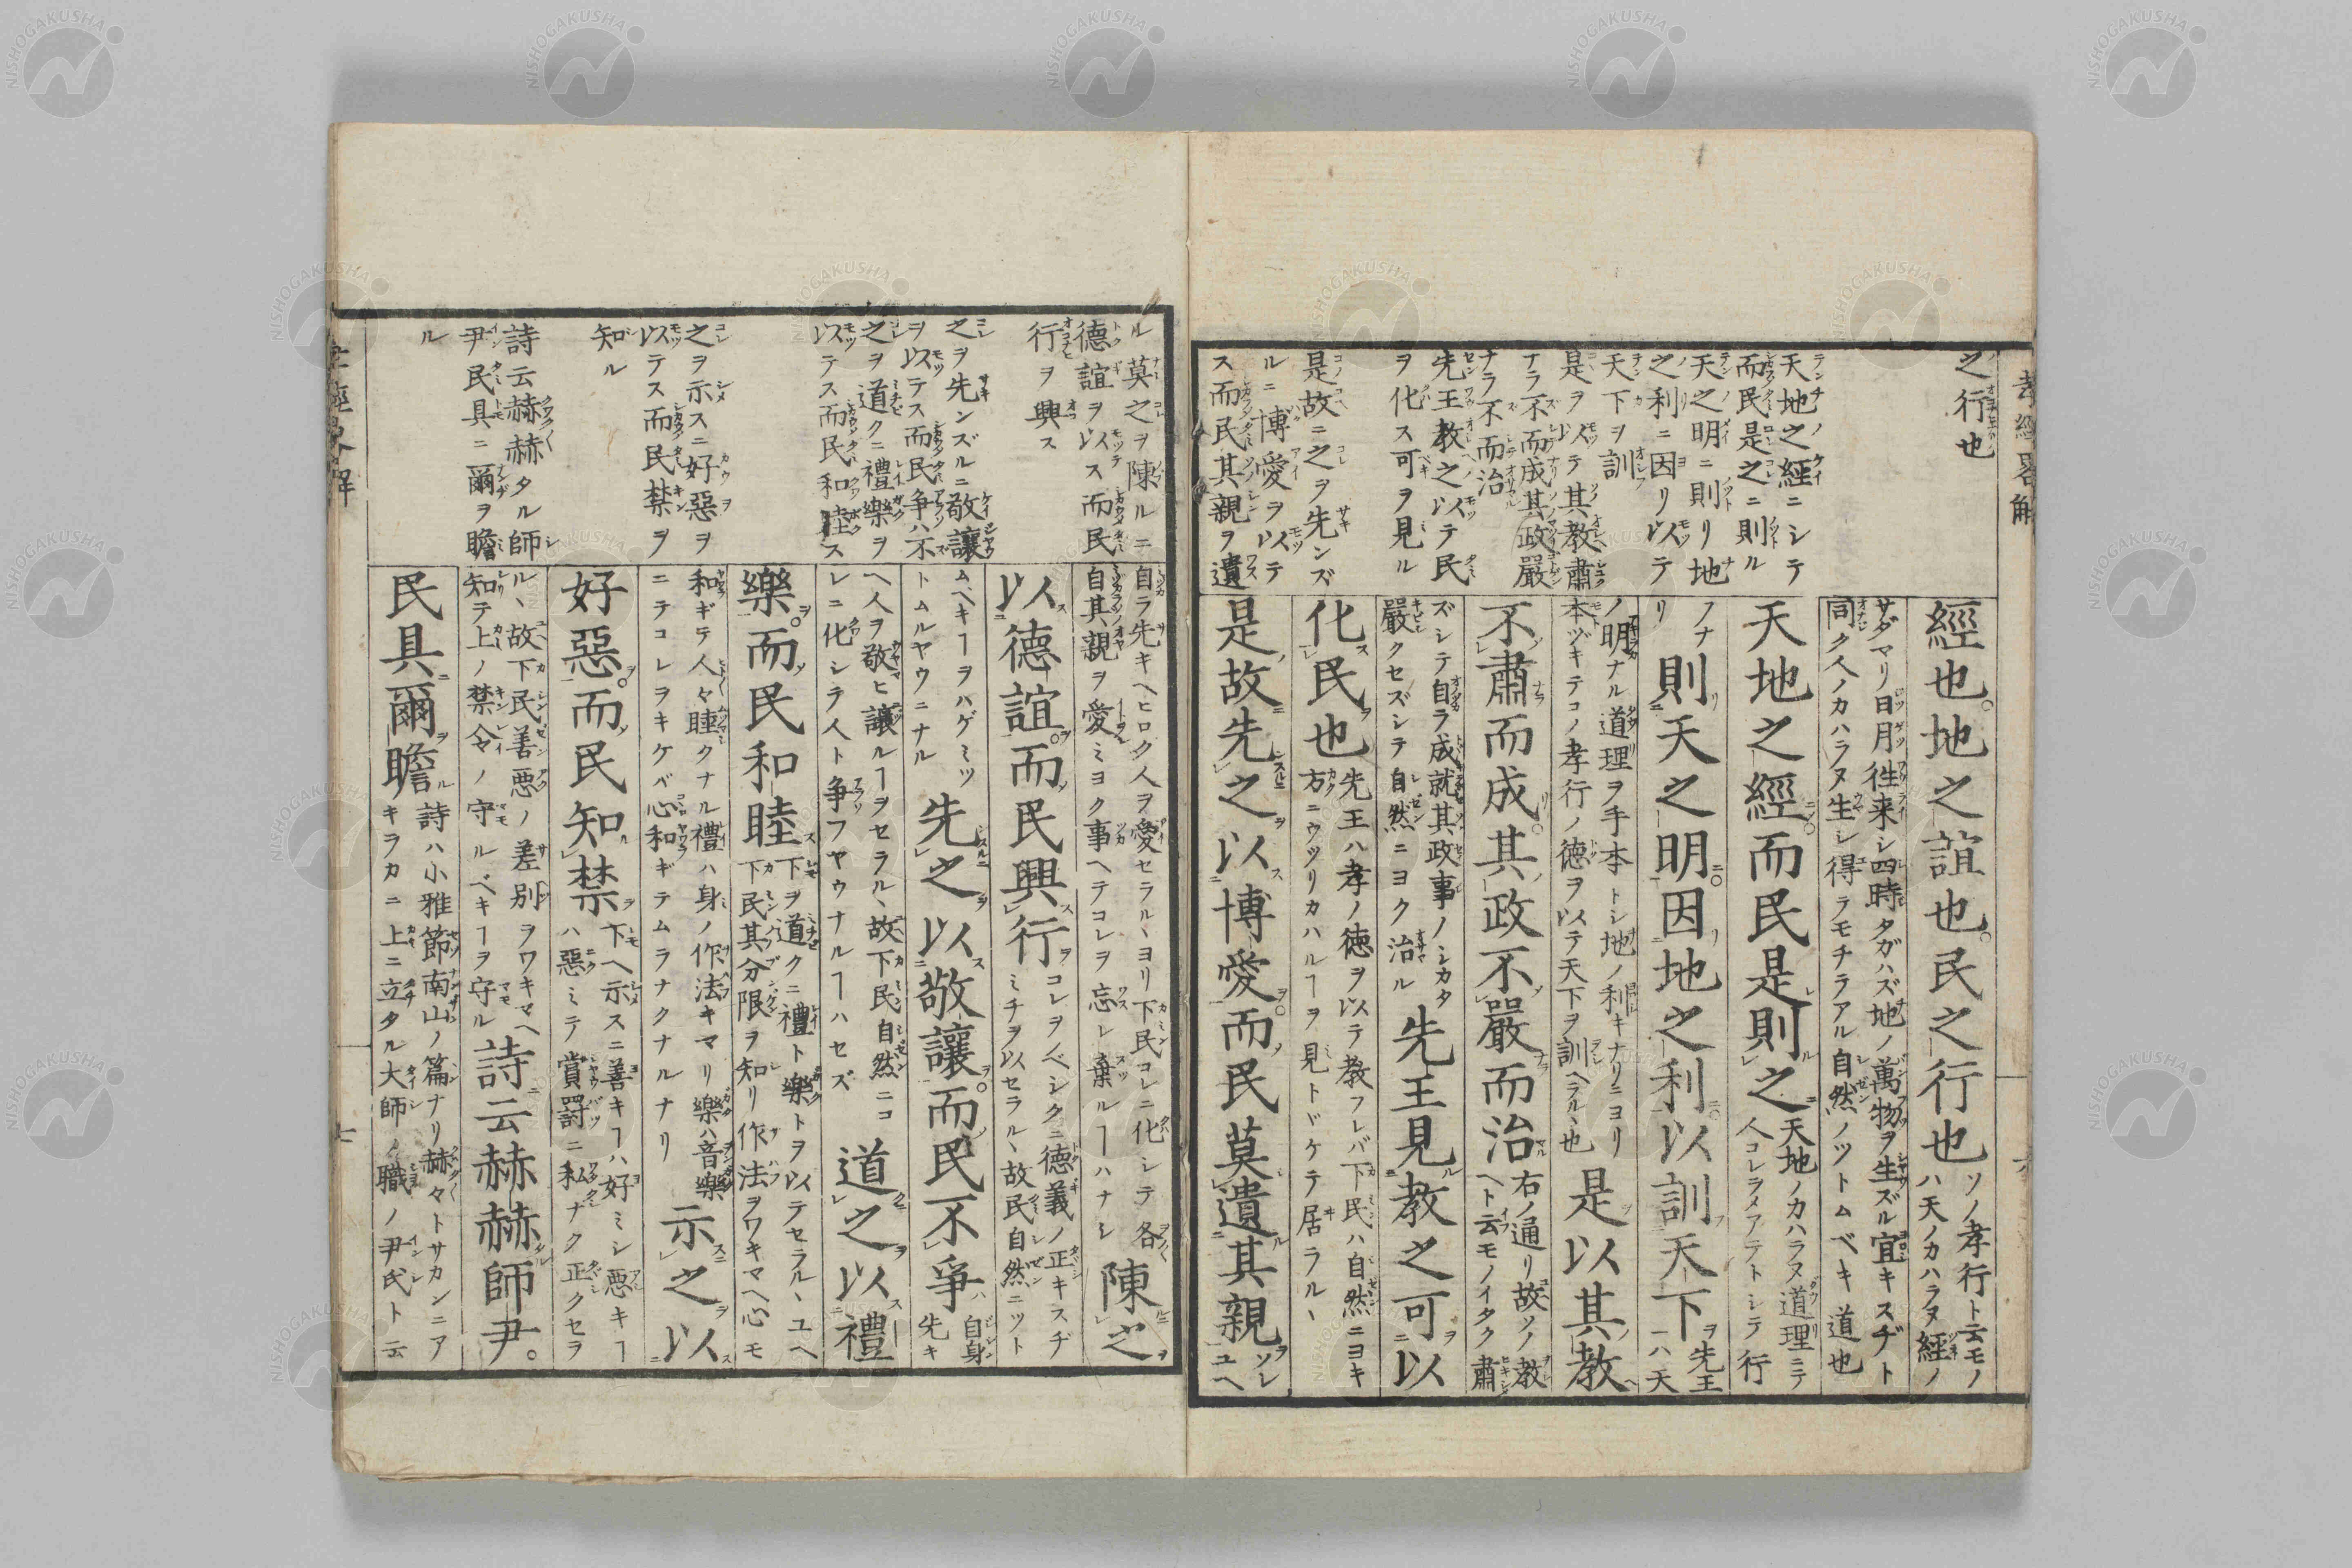 孝經畧解
之行也
天地之經ニシテ
而民是之ニ則ル
天之明ニ則リ地
之利ニ因リ以テ
天下ヲ訓
是ヲ以テ其教肅
ナラ不而成其政嚴
ナラ不而治
先王教之以テ民
ヲ化ス可ヲ見ル
是故ニ之ヲ先ンズ
ルニ博愛ヲ以テ
ス而民其親ヲ遺
經也地之誼也民之行也ソノ孝行ト云モノ
ハ天ノカハラヌ經ノ
サダマリ日月往来シ四時タガハズ地ノ萬物ヲ生ズル宜キスヂト
同ク人ノカハラヌ生シ得ラモチラアル自然ノツトムベキ道也
天地之經而民是則之天地ノカハラヌ道理ニテ
人コレラメアテトシテ行
ノナ
リ
則天之明因地之利以訓天下先王
ハ天
ノ明ナル道理ヲ手本トシ地ノ利キナリニヨリ
本ヅキテコノ孝行ノ徳ヲ以テ天下ヲ訓ヘラルヽ也
是以其教
不肅而成其政不嚴而治右ノ通リ故ソノ教
ヘト云モノイタク肅
ズシテ自ラ成就其政事ノシカタ
嚴クセズシテ自然ニヨク治ル
先王見教之可以
化民也先王ハ孝ノ徳ヲ以テ教フレバ下民ハ自然ニヨキ
方ニウツリカハルヿヲ見トドケテ居ラルヽ
是故先之以博愛而民莫遺其親ソレ
ユヘ
ル莫之ヲ陳ルニ
德誼ヲ以ス而民
行ヲ興ス
之ヲ先ンズルニ敬讓
ヲ以テス而民争ハ不
之ヲ道クニ禮樂ヲ
以テス而民和睦ス
之ヲ示スニ好惡ヲ
以テス而民禁ヲ
知ル
詩云赫赫タル師
尹民具ニ爾ヲ瞻
ル
自ラ先キヘヒロク人ヲ愛セラルヽヨリ下民コレニ化シテ各
自其親ヲ愛ミヨク事ヘテコレヲ忘レ棄ルヿハナシ
陳之
以德誼而民興行コレヲノベシクニ德義ノ正キスヂ
ミチヲ以セラルヽ故民自然ニツト
ムベキヿヲハゲミツ
トムルヤウニナル
先之以敬讓而民不爭自身
先キ
ヘ人ヲ敬ヒ讓ルヿヲセラルヽ故下民自然ニコ
レニ化シラ人ト争フヤウナルヿハセズ
道之以禮
樂而民和睦下ヲ道クニ禮ト樂トヲ以テセラルヽユヘ
下民其分限ヲ知リ作法ヲワキマヘ心モ
和ギテ人々睦クナル禮ハ身ノ作法キマリ樂ハ音樂
ニテコレヲキケバ心和ギテムラナクナルナリ
示之以
好惡而民知禁下ヘ示スニ善キヿハ好ミシ悪キヿ
ハ惡ミテ賞罰ニ私ナク正クセラ
ルヽ故下民善悪ノ差別ヲワキマヘ
知テ上ノ禁令ノ守ルベキヿヲ守ル
詩云赫赫師尹
民具爾瞻詩ハ小雅節南山ノ篇ナリ赫々トサカンニア
キラカニ上ニ立タル大師ノ職ノ尹氏ト云
七